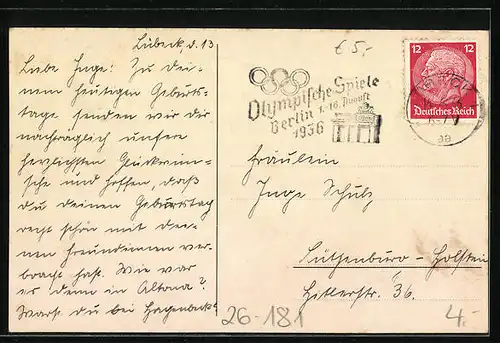 Lübeck, d. 13
Liebe Inge! Zu dei-
nem heutigen Geburts-
tage senden wir dir
nachträglich unsere
herzlichsten Glückwün-
sche und hoffen, daß
du deinen Geburtstag
recht schön mit dei-
nen Freundinnen ver-
bracht hast. Wie war
es denn in Altona?
Warst du bei Hagenbeck?
€ 5,-
Olympische Spiele
Berlin 1.-16. August
1936
12 12
Deutsches Reich
Fräulein
Inge Schulz
Lütjenburg - Holstein
Hitlerstr. 36.
26-181
4.-